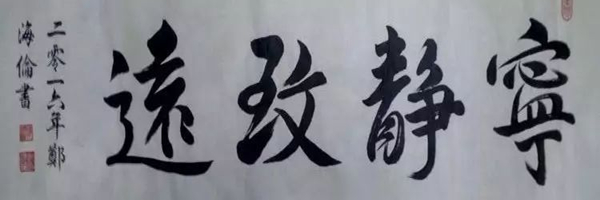 寧靜致遠
二零一六年鄭
海倫書